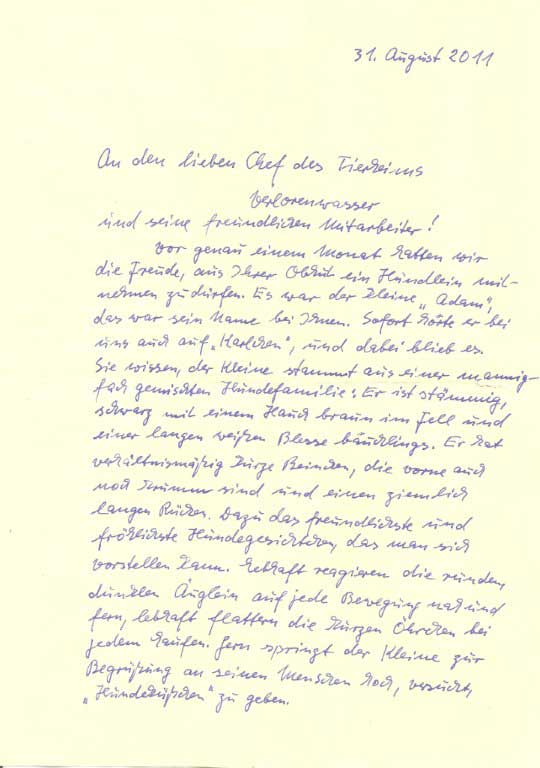 31. August 2011
An den lieben Chef des Tierheims
Verlorenwasser
und seine freundlichen Mitarbeiter!
Vor genau einem Monat hatten wir
die Freude, aus Ihrer Obhut ein Hündlein mit-
nehmen zu dürfen. Es war der kleine „Adam“,
das war sein Name bei Ihnen. Sofort hörte er bei
uns auch auf „Karlchen“, und dabei blieb es.
Sie wissen, der Kleine stammt aus einer mannig-
fach gemischten Hundefamilie: Er ist stämmig,
schwarz mit einem Hauch braun im Fell und
einer langen weißen Blesse bäuchlings. Er hat
verhältnismäßig kurze Beinchen, die vorne auch
noch krumm sind und einen ziemlich
langen Rücken. Dazu das freundlichste und
fröhlichste Hundegesichtchen, das man sich
vorstellen kann. Lebhaft reagieren die runden,
dunklen Äuglein auf jede Bewegung nah und
fern, lebhaft flattern die kurzen Öhrchen bei
jedem Laufen. Gern springt der Kleine zur
Begrüßung an seinen Menschen hoch, versucht,
„Hundeküßchen“ zu geben.